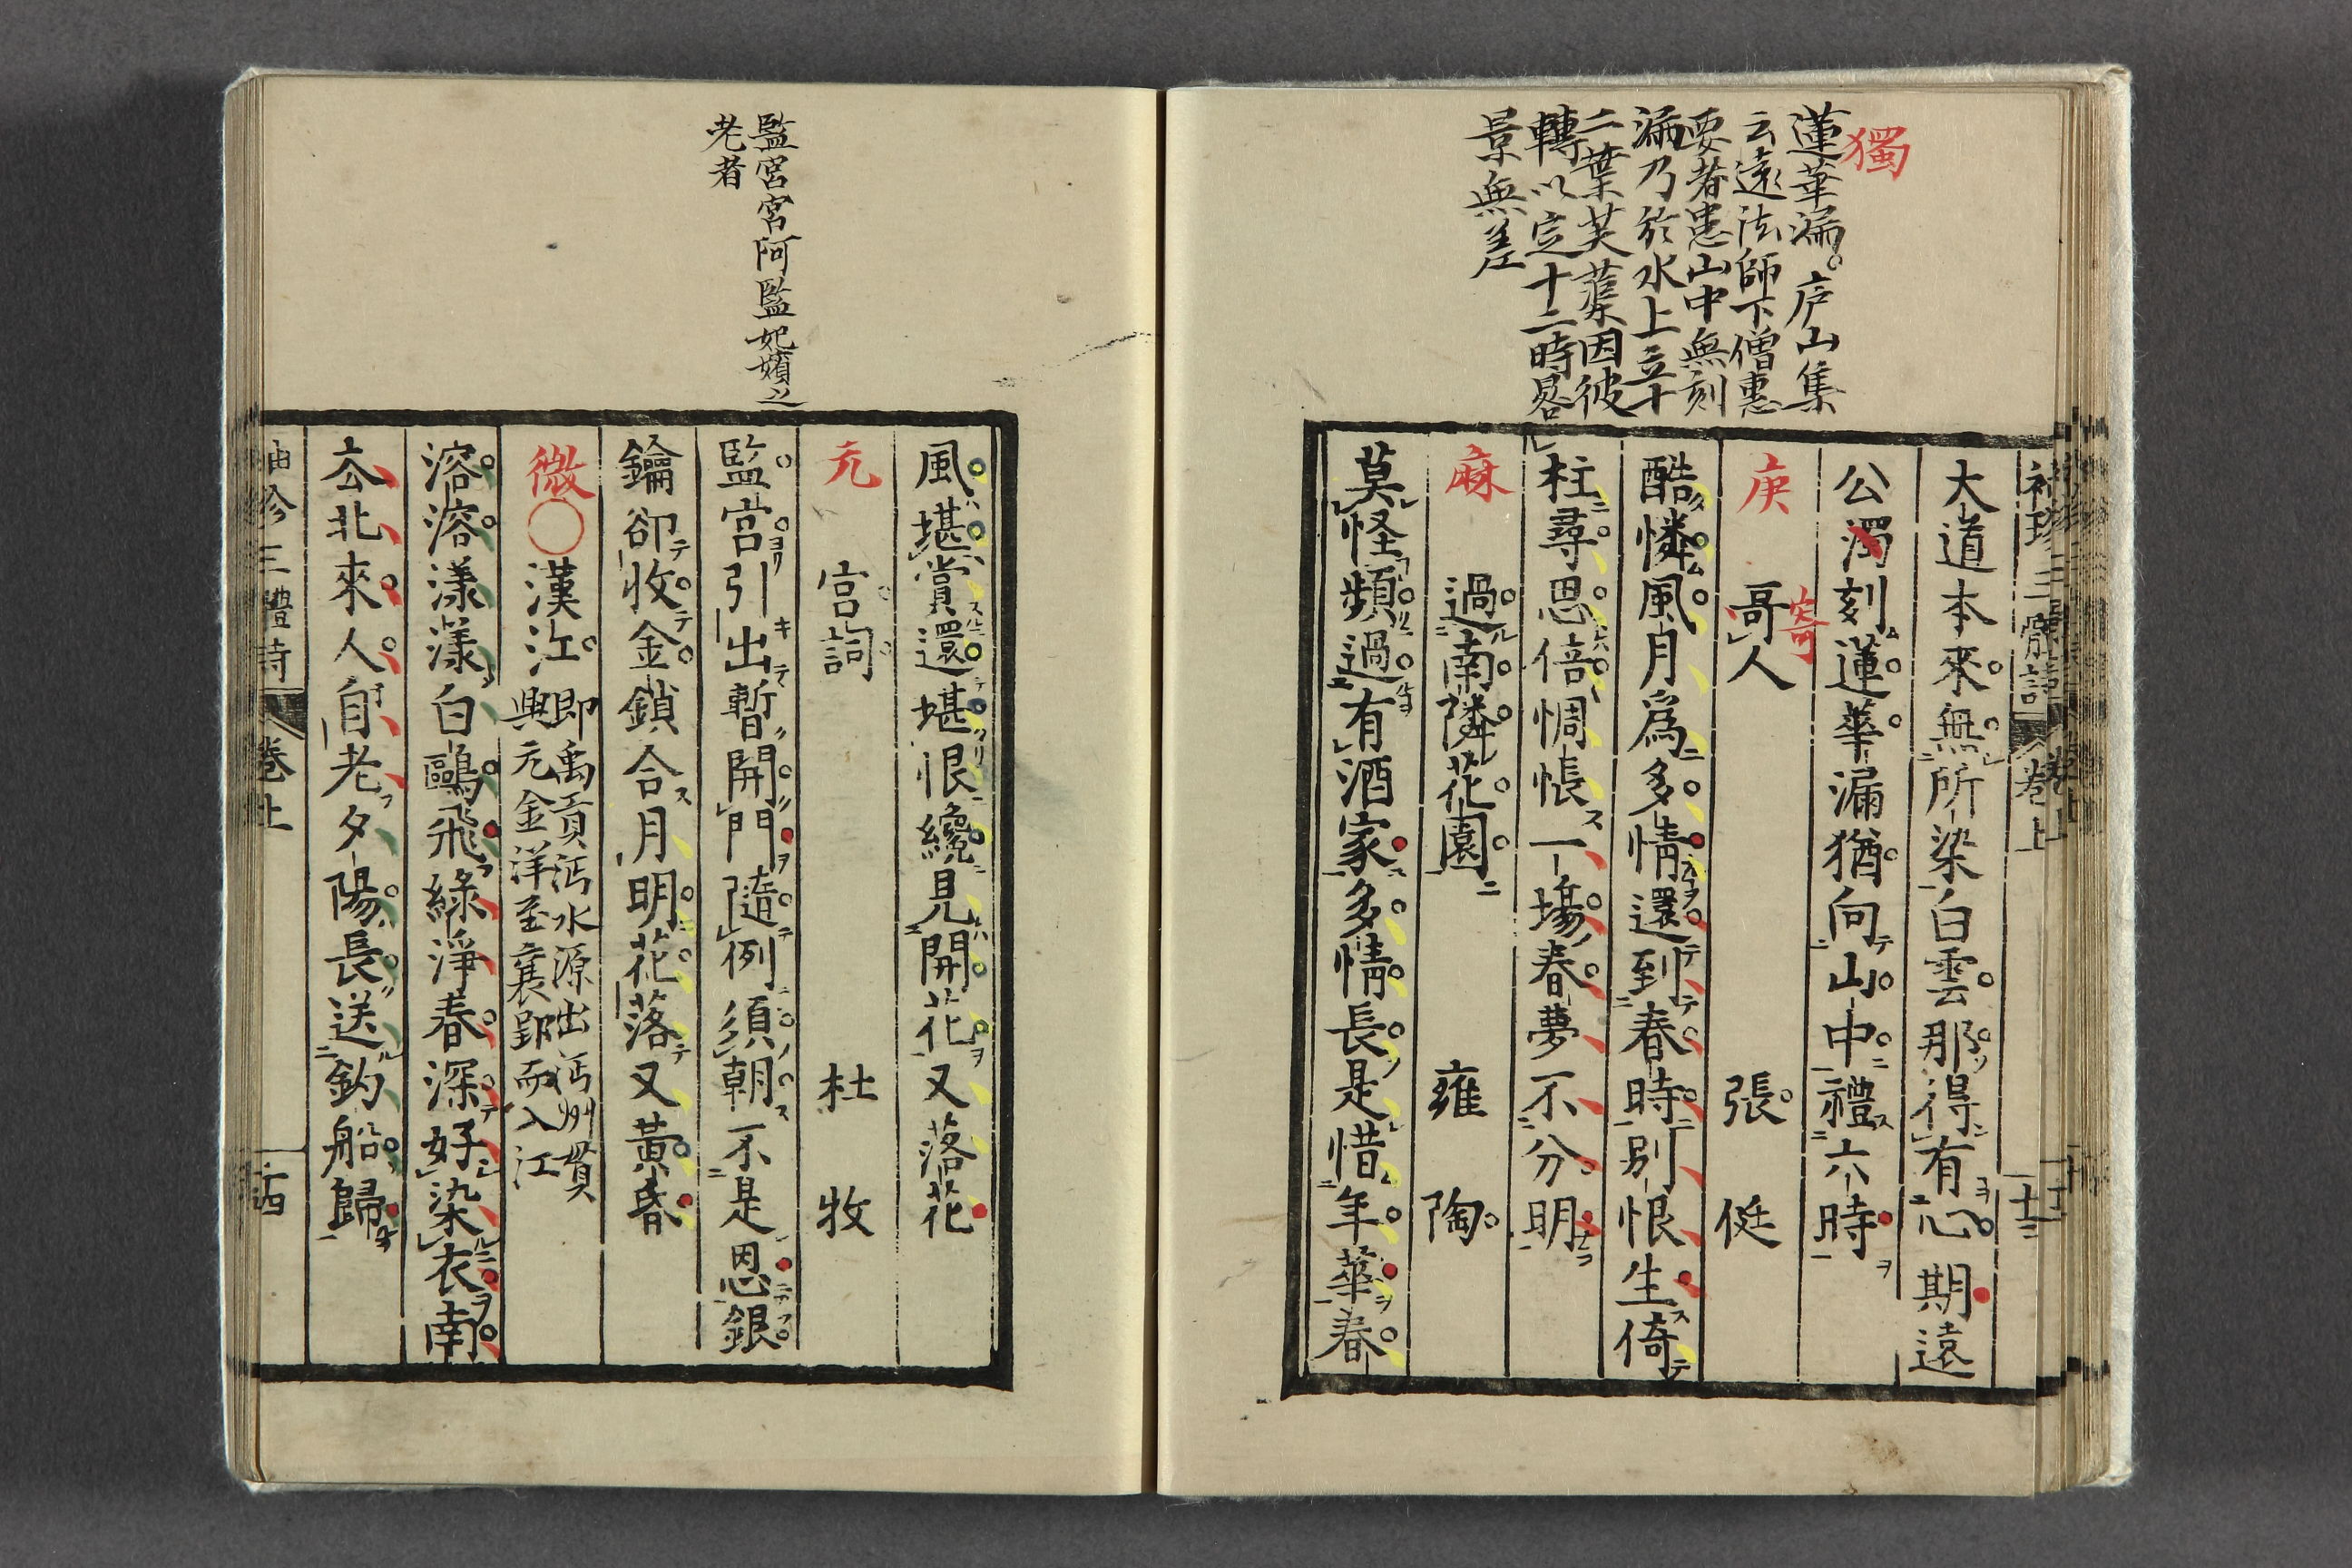 獨
蓮華漏。庐山集
云遠法師下僧惠
要者患山中無刻
漏乃於水上立十
二葉芙蕖因彼
轉以定十二時晷
景無差
大道本來無所染白雲那得有心期遠
公濁刻蓮華漏猶向山中禮六時
庚 哥人 張 侹
酷憐風月爲多情還到春時別恨生倚
柱尋思倍惆悵一場春夢不分明
麻 過南隣花園 雍 陶
莫怪頻過有酒家多情長是惜年華春
監宮宮阿監妃嬪之
老者
風堪賞還堪恨纔見開花又落花
元 宮詞 杜 牧
監宮引出暫開門隨例須朝不是恩銀
鑰卻收金鎖合月明花落又黃昏
微 漢江 即禹貢沔水源出沔州貫
興元金洋至襄郢而入江
溶溶漾漾白鷗飛綠淨春深好染衣南
去北來人自老夕陽長送釣船歸
袖珍三體詩 卷上 十四